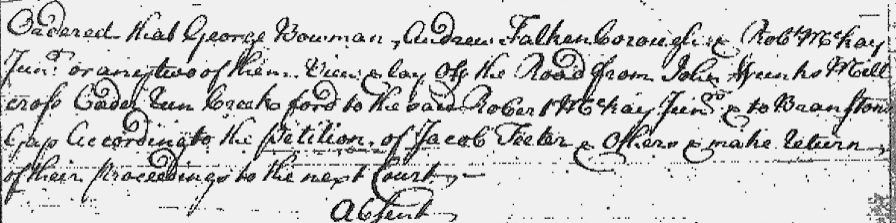 Ordered that George Bowman, Andrew Falkenborough & Robt McKay
Junr. or any two of them View & lay Off the Road from John Funks Mill
cross Ceder Run Creek ford to the said Robert McKay Junrs. & to Branstons
Gap According to the Petition of Jacob Teeter & Others & make return,
of their Proceedings to the next Court,
Absent,